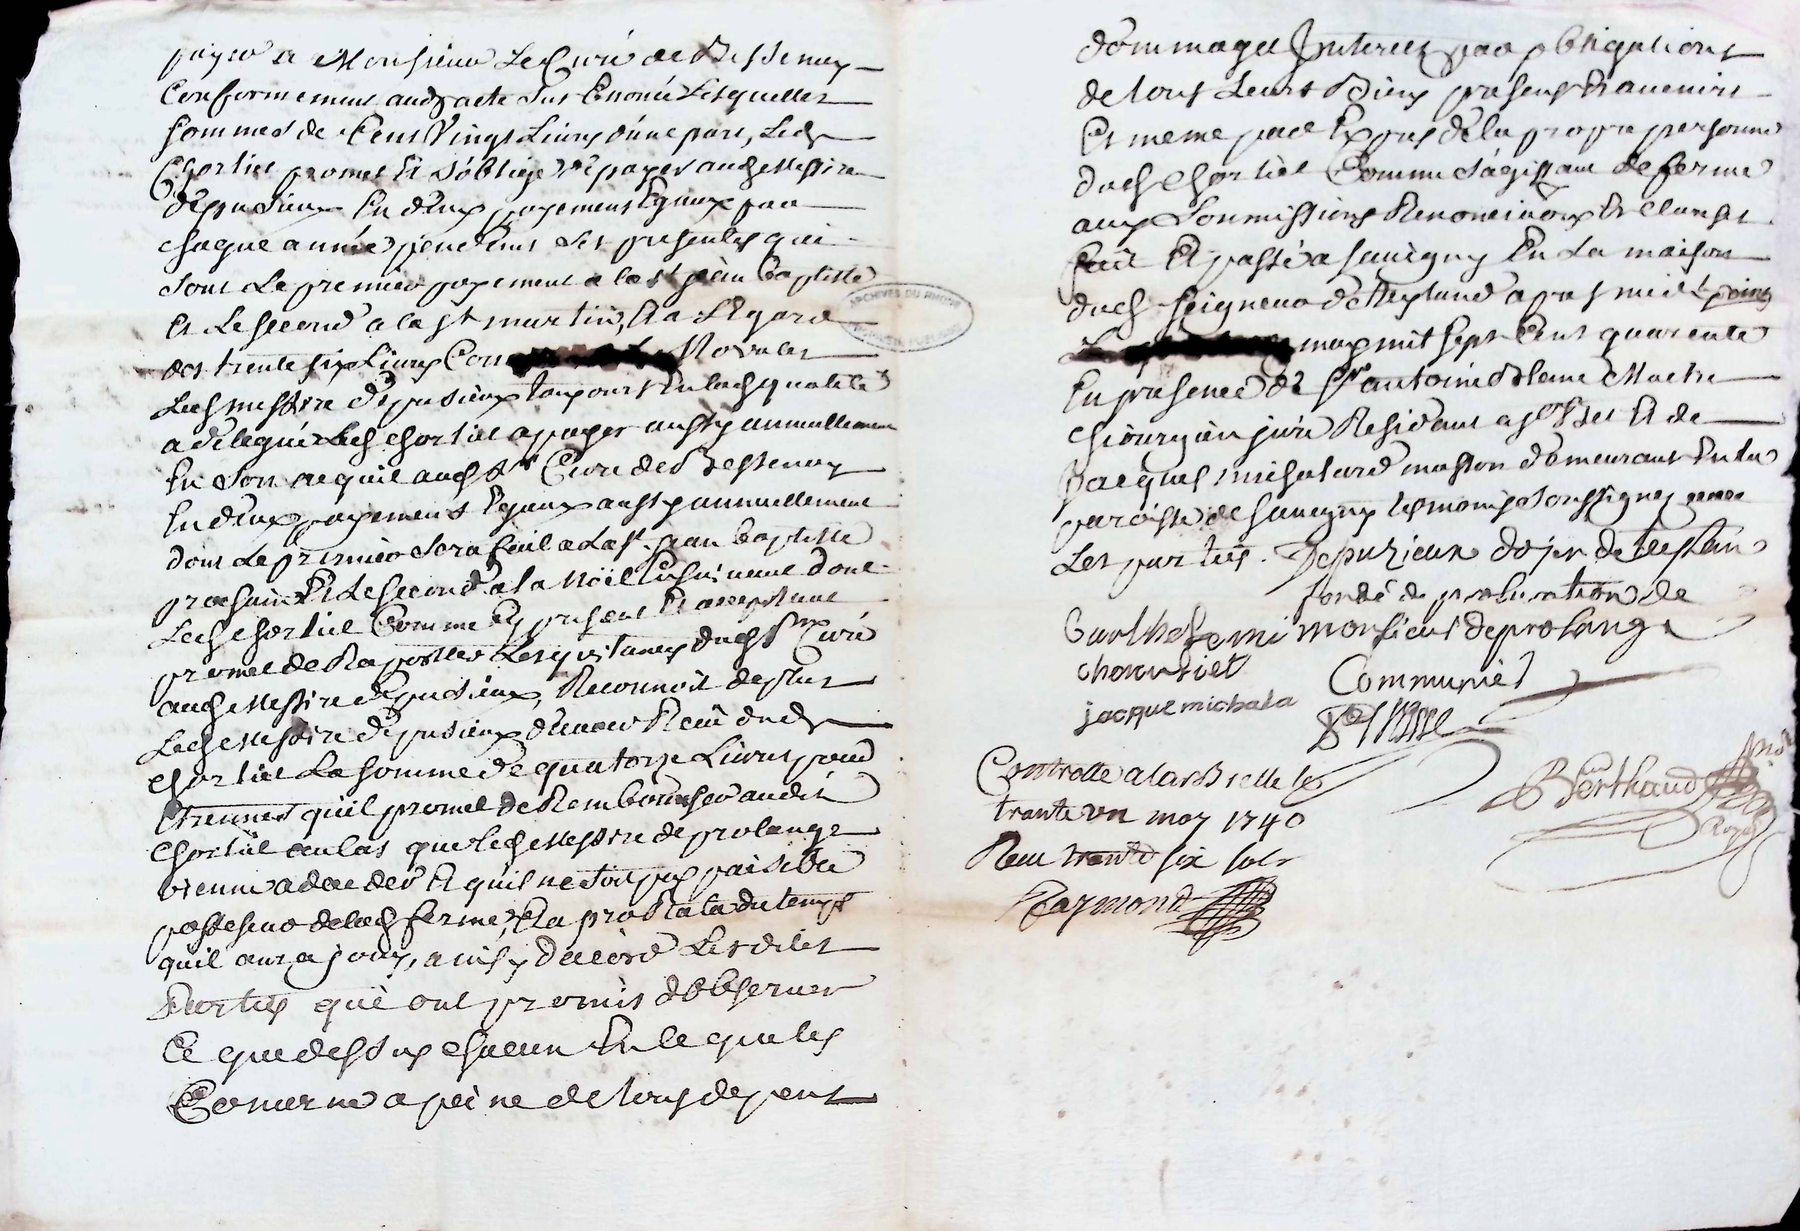 payer a Monsieur Le Curé de Bessenay
Conformement audt acte sus Enoncé Lesquelles
sommes de Cent Vingt Livres d'une part, Ledt
Chortiet promet Et s'oblige de payer audt Messire
depusieux En deux payements Egaux par
chaque année pendant les presentes qui
sont Le premier payement a la st jean baptiste
Et Le second a la st martin, Et a L'Egard
des trente six Livres Rovales
Ledt messire depusieux toujours En ladt qualité
a delegué Ledt chortiet a payer aussy annuellement
En son acquit audt Sr Curé de Bessenay
En deux payements Egaux aussy annuellement
dont Le premier sera fait a La st jean baptiste
prochain Et Le second a la Noël Ensuivant dont
Ledt chortiet Comme Cy present Et acceptant
promet de Raporter Les quitances dudt Sr Curé
audt Messire depusieux, Reconnoit de plus
Ledt Messire depusieux d'avoir Receu dudt
chortiet La somme de quatorze Livres pour
Etrennes qu'il promet de Rembourser audit
Chortiet au cas que ledt Messire de prolange
vienne a deceder Et qu'il ne soit pas paisible
possesseur de ladt ferme, Et a pro Rata du temps
qu'il aura jouy, ainsy d'accord Lesdites
Parties qui ont promis d'observer
Ce que dessus chacun En le que les
Concerne a peine de tous depens
dommages Interets par obligations
de tous Leurs Biens presents Et avenirs
Et meme par Exprès de la propre personne
dudt Chortiet Comme s'agissant de ferme
aux soumissions Renonciations Et Clauses
fait Et passé a Savigny En La maison
dudt Seigneur de apres midi
may mil sept Cent quarente
En presence de Sr antoine Maitre
chirurgien juré Residant a Et de
Jacques michalard masson demeurant En la
paroisse de Savigny temoins soussignez avec
Les parties. Depuzieux
fondé de procuration de
Barthelemi monsieur deprolange
chorrtiet
Communiet
jacque michala
Berthaud
Controllé a Larbrelle le
trante un may 1740
Receu trante six sols
Raymond
ARCHIVES DU RHONE